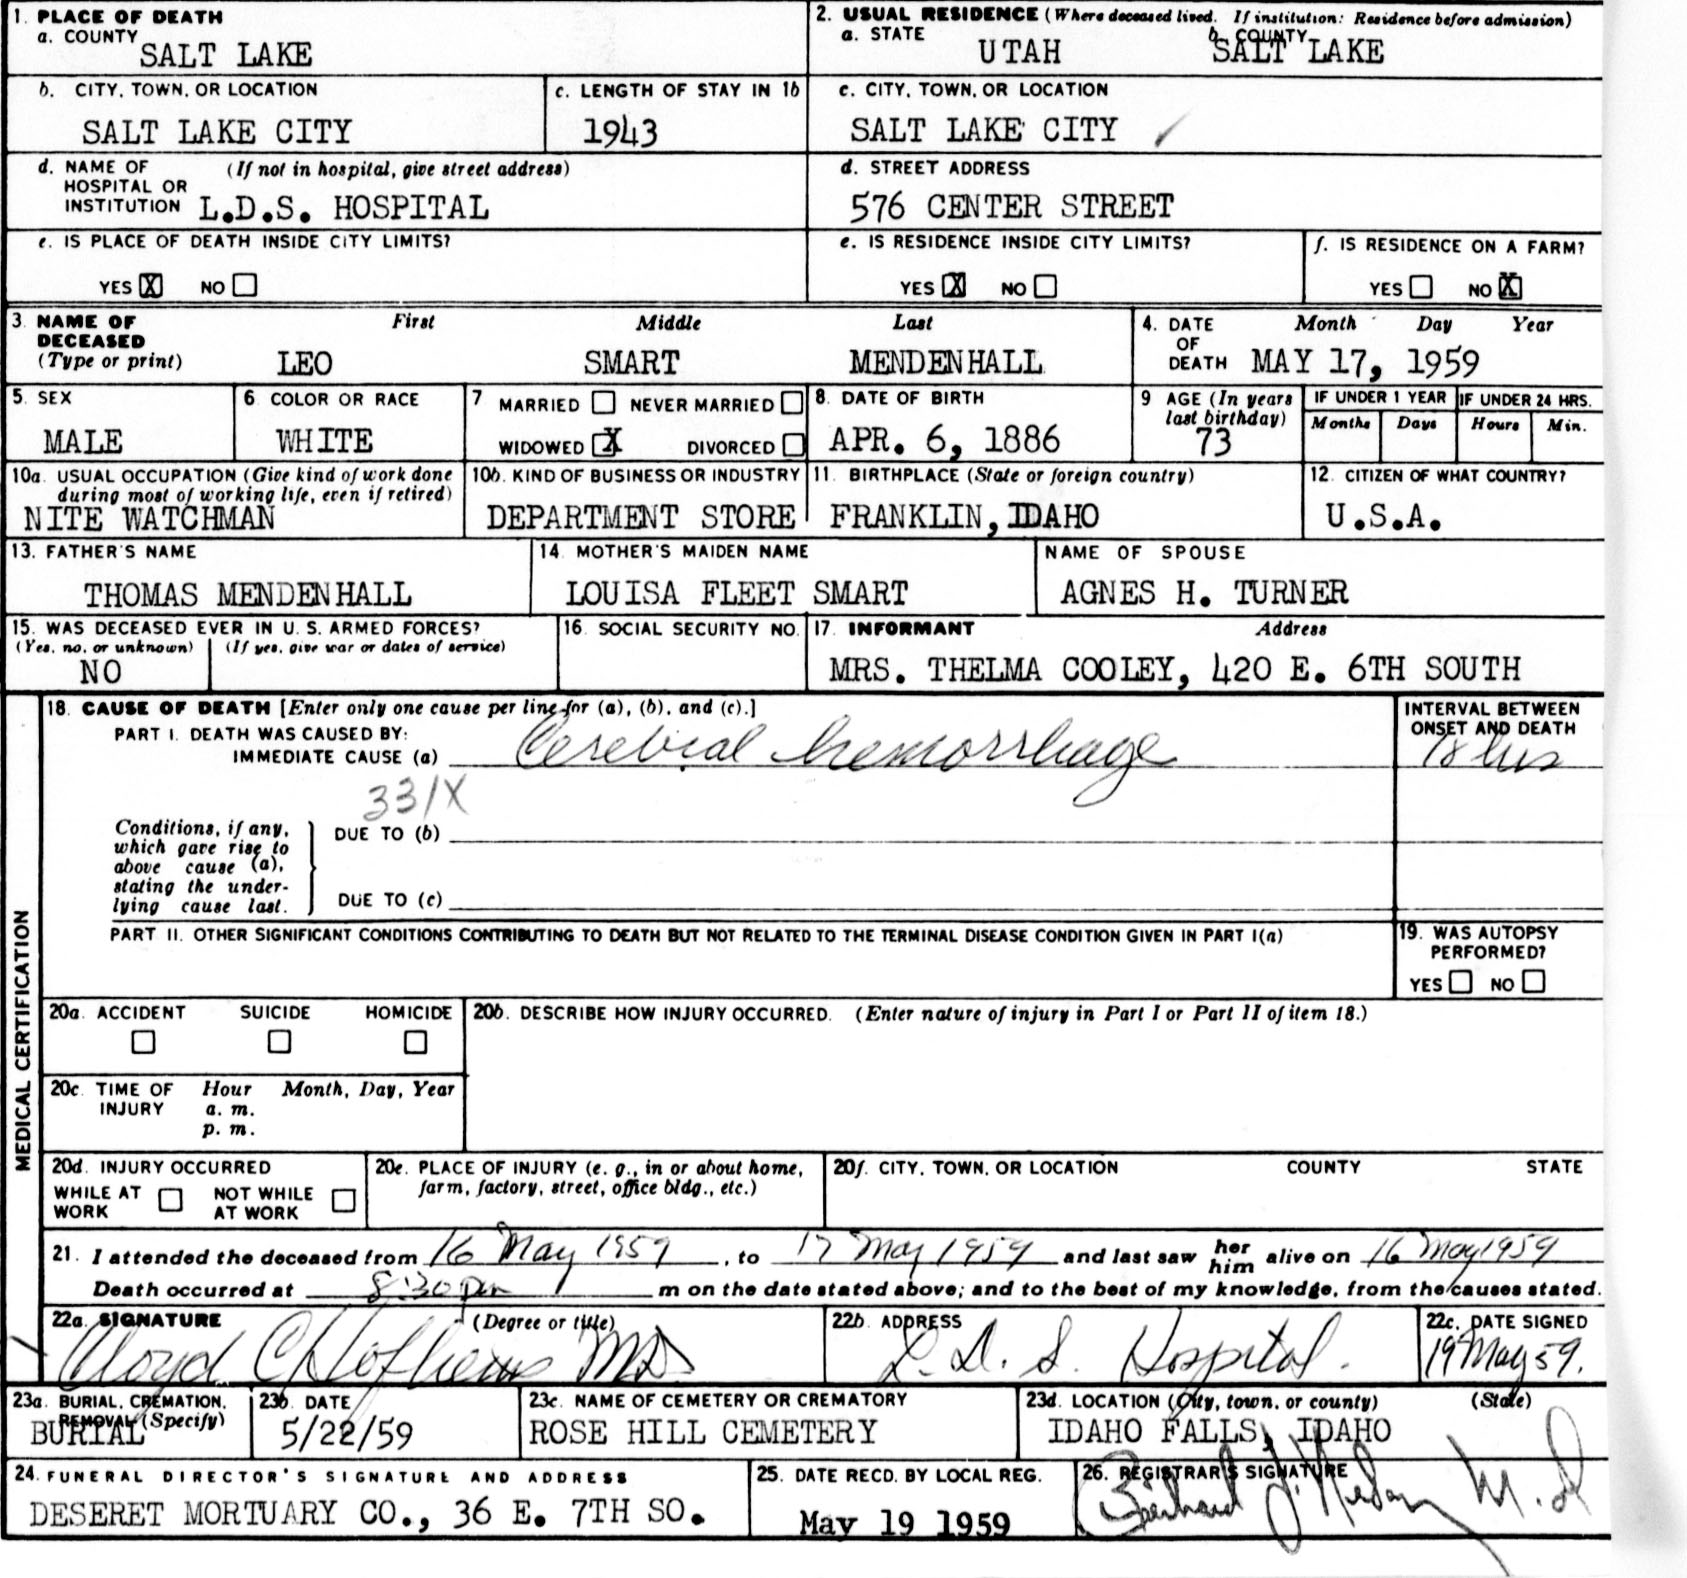 1. PLACE OF DEATH
a. COUNTY
SALT LAKE
2. USUAL RESIDENCE (Where deceased lived. If institution: Residence before admission)
a. STATE b. COUNTY
UTAH SALT LAKE
b. CITY, TOWN, OR LOCATION
SALT LAKE CITY
c. LENGTH OF STAY IN 1b
1943
c. CITY, TOWN, OR LOCATION
SALT LAKE CITY
d. NAME OF (If not in hospital, give street address)
HOSPITAL OR
INSTITUTION L.D.S. HOSPITAL
d. STREET ADDRESS
576 CENTER STREET
e. IS PLACE OF DEATH INSIDE CITY LIMITS?
YES X NO
e. IS RESIDENCE INSIDE CITY LIMITS?
YES X NO
f. IS RESIDENCE ON A FARM?
YES NO X
3. NAME OF First Middle Last
DECEASED
(Type or print) LEO SMART MENDENHALL
4. DATE Month Day Year
OF
DEATH MAY 17, 1959
5. SEX
MALE
6. COLOR OR RACE
WHITE
7 MARRIED NEVER MARRIED
WIDOWED X DIVORCED
8. DATE OF BIRTH
APR. 6, 1886
9 AGE (In years
last birthday)
73
IF UNDER 1 YEAR IF UNDER 24 HRS.
Months Days Hours Min.
10a. USUAL OCCUPATION (Give kind of work done
during most of working life, even if retired)
NITE WATCHMAN
10b. KIND OF BUSINESS OR INDUSTRY
DEPARTMENT STORE
11. BIRTHPLACE (State or foreign country)
FRANKLIN, IDAHO
12. CITIZEN OF WHAT COUNTRY?
U.S.A.
13. FATHER'S NAME
THOMAS MENDENHALL
14. MOTHER'S MAIDEN NAME
LOUISA FLEET SMART
NAME OF SPOUSE
AGNES H. TURNER
15. WAS DECEASED EVER IN U.S. ARMED FORCES?
(Yes, no, or unknown) (If yes, give war or dates of service)
NO
16. SOCIAL SECURITY NO.
17. INFORMANT Address
MRS. THELMA COOLEY, 420 E. 6TH SOUTH
MEDICAL CERTIFICATION
18. CAUSE OF DEATH [Enter only one cause per line for (a), (b), and (c).]
PART I. DEATH WAS CAUSED BY:
IMMEDIATE CAUSE (a) Cerebral hemorrhage
INTERVAL BETWEEN
ONSET AND DEATH
18 hrs
331X
Conditions, if any,
which gave rise to
above cause (a),
stating the under-
lying cause last.
DUE TO (b)
DUE TO (c)
PART II. OTHER SIGNIFICANT CONDITIONS CONTRIBUTING TO DEATH BUT NOT RELATED TO THE TERMINAL DISEASE CONDITION GIVEN IN PART I(a)
19. WAS AUTOPSY
PERFORMED?
YES NO
20a. ACCIDENT SUICIDE HOMICIDE
20b. DESCRIBE HOW INJURY OCCURRED. (Enter nature of injury in Part I or Part II of item 18.)
20c. TIME OF Hour Month, Day, Year
INJURY a. m.
p. m.
20d. INJURY OCCURRED
WHILE AT NOT WHILE
WORK AT WORK
20e. PLACE OF INJURY (e. g., in or about home,
farm, factory, street, office bldg., etc.)
20f. CITY, TOWN, OR LOCATION COUNTY STATE
21. I attended the deceased from 16 May 1959, to 17 May 1959 and last saw her him alive on 16 May 1959
Death occurred at 8:30 pm m on the date stated above; and to the best of my knowledge, from the causes stated.
22a. SIGNATURE (Degree or title)
MD
22b. ADDRESS
L. D. S. Hospital.
22c. DATE SIGNED
19 May 59.
23a. BURIAL, CREMATION,
REMOVAL (Specify)
BURIAL
23b. DATE
5/22/59
23c. NAME OF CEMETERY OR CREMATORY
ROSE HILL CEMETERY
23d. LOCATION (City, town, or county) (State)
IDAHO FALLS, IDAHO
24. FUNERAL DIRECTOR'S SIGNATURE AND ADDRESS
DESERET MORTUARY CO., 36 E. 7TH SO.
25. DATE RECD. BY LOCAL REG.
May 19 1959
26. REGISTRAR'S SIGNATURE
M.D